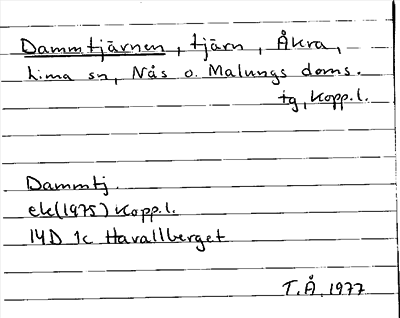 Dammtjärnen, tjärn, Åkra,
Lima sn, Nås o. Malungs doms.
tg, Kopp.l.
Dammtj.
ek(1975) Kopp.l.
14D 1c Havallberget
T.Å. 1977